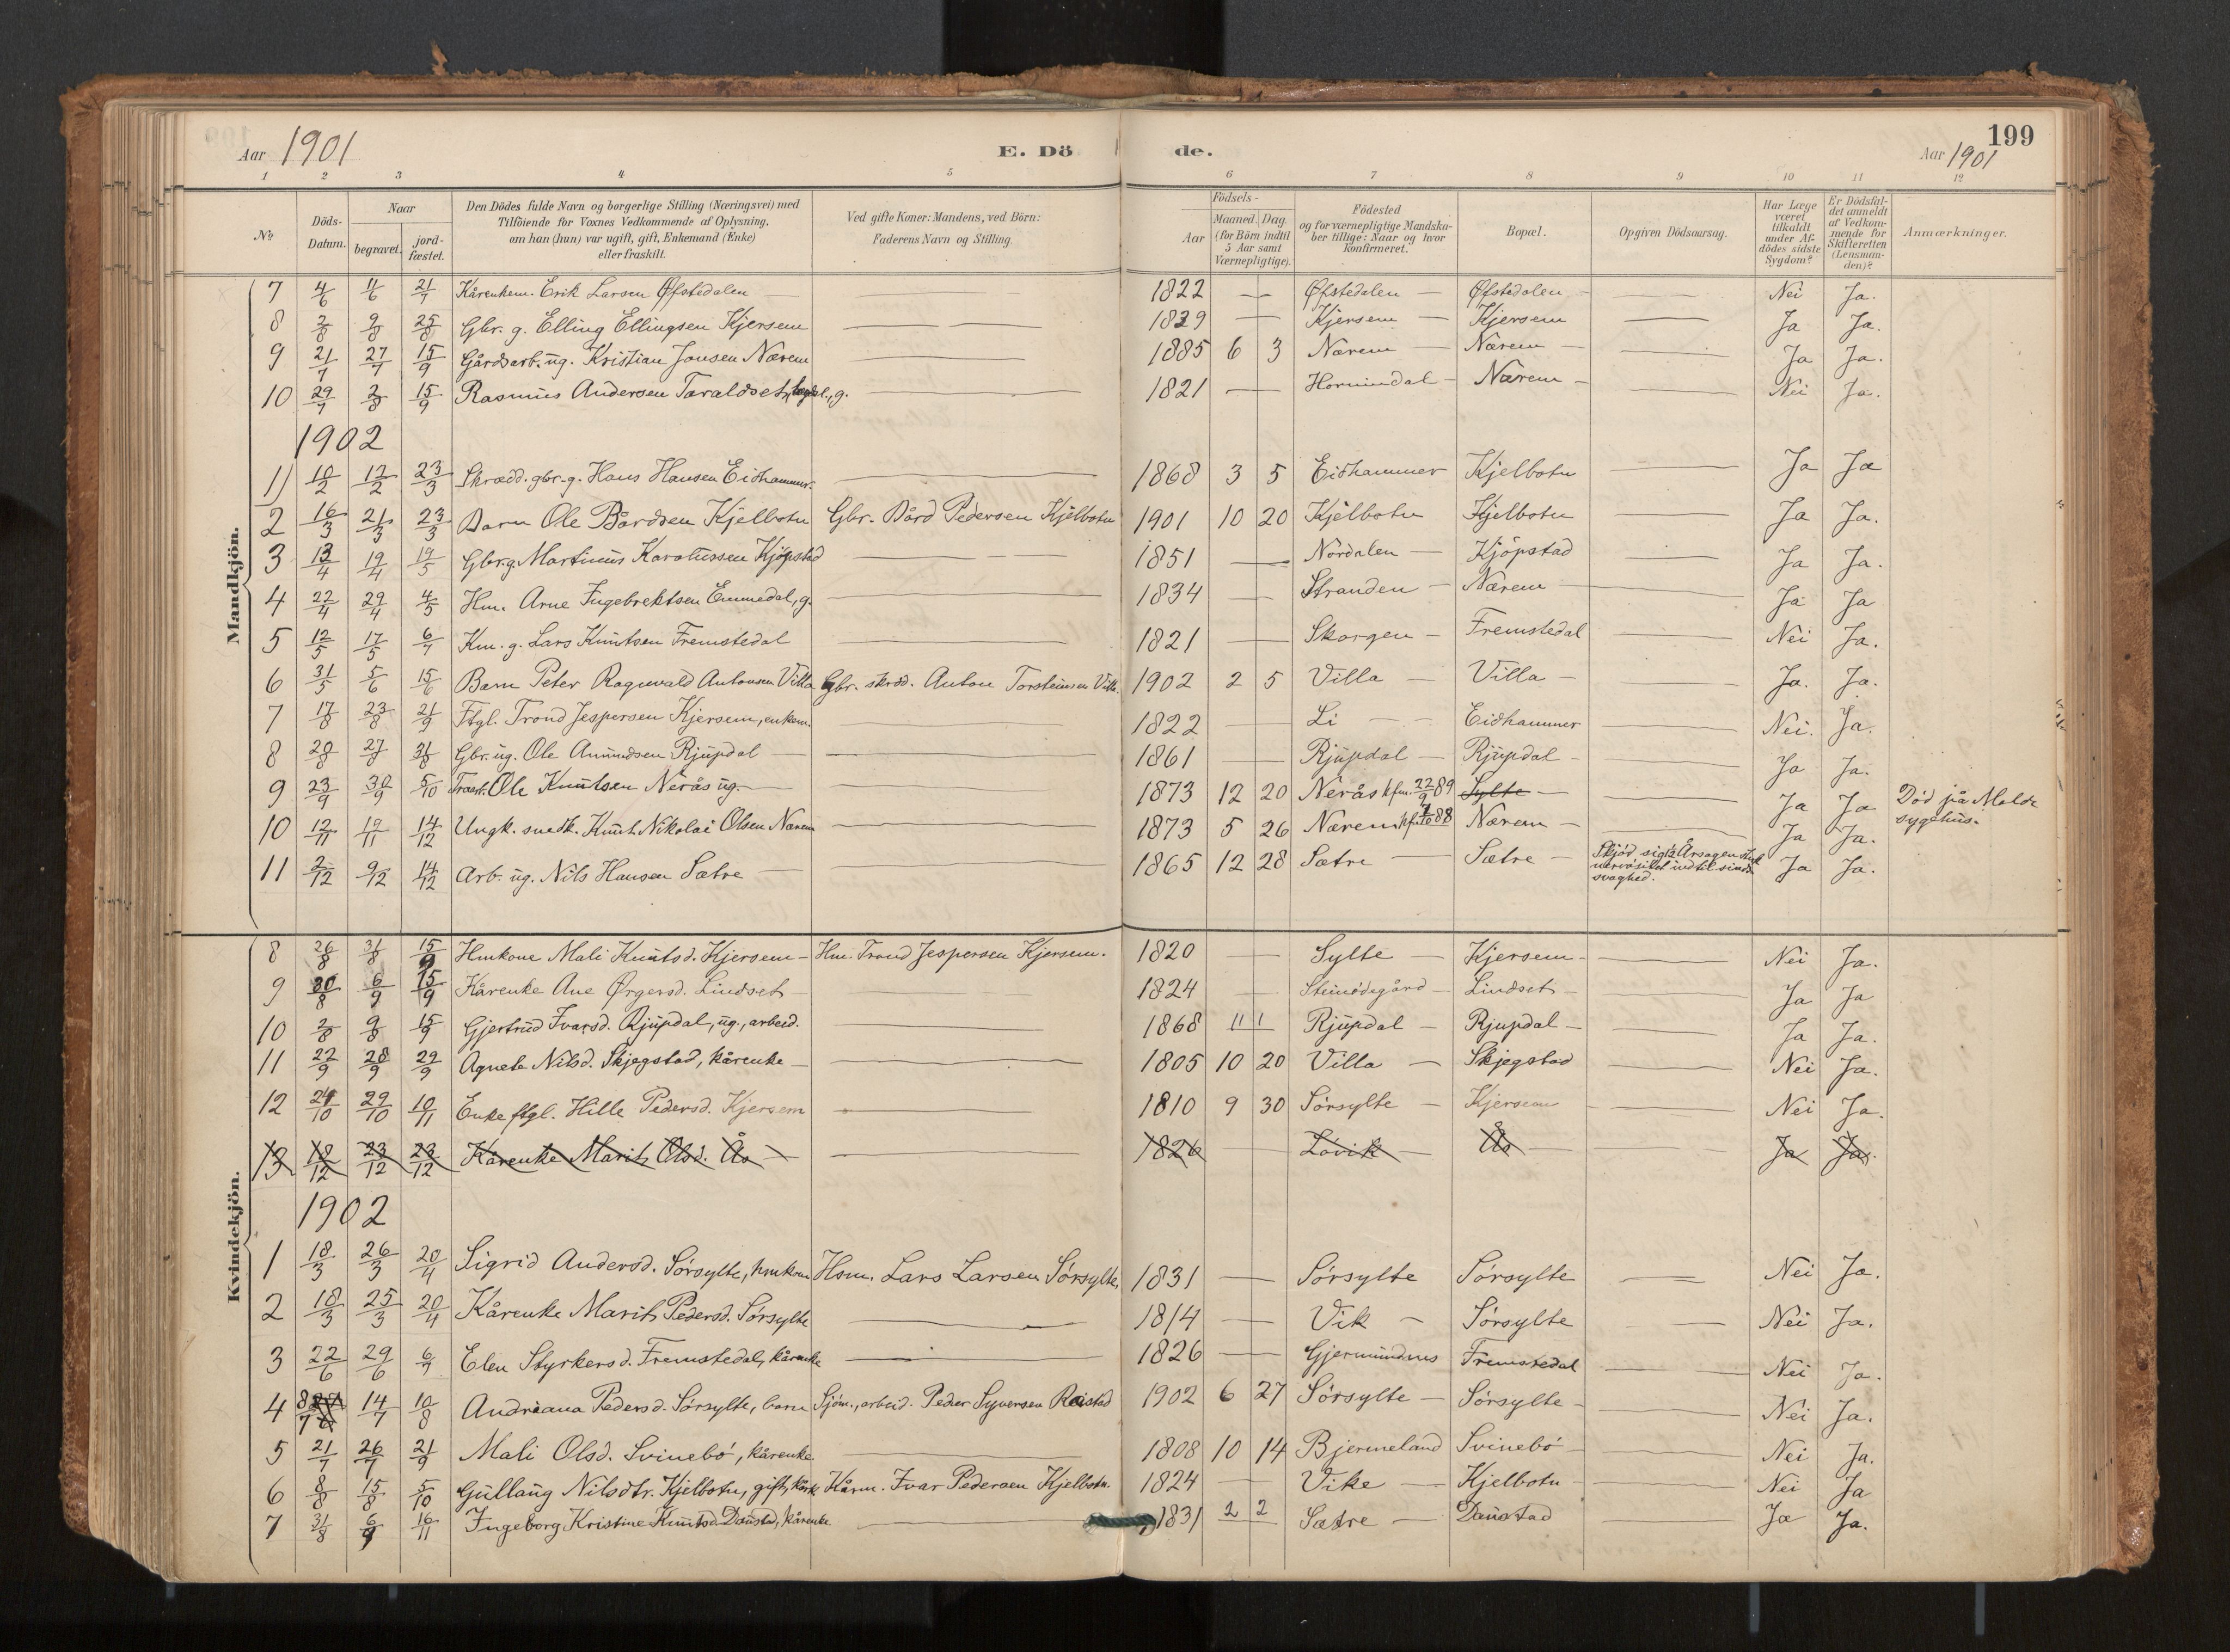 Aar 1901 E. Dö de. Aar 1901 199
1 2 3 4 5 6 7 8 9 10 11 12
№ Döds-Datum. Naar begravet. jord-fæstet. Den Dödes fulde Navn og borgerlige Stilling (Næringsvei) med Tilföiende for Voxnes Vedkommende af Oplysning, om han (hun) var ugift, gift, Enkemand (Enke) eller fraskilt. Ved gifte Koner: Mandens, ved Börn: Faderens Navn og Stilling. Födsels- Aar Maaned. Dag. (for Börn indtil 5 Aar samt Værnepligtige). Födested og for værnepligtige Mandska-ber tillige: Naar og hvor konfirmeret. Bopæl. Opgiven Dödsaarsag. Har Læge været tilkaldt under Af-dödes sidste Sygdom? Er Dödsfal-det anmeldt af Vedkom-mende for Skifteretten (Lensman-den)? Anmærkninger.
Mandkjön.
7 4/6 11/6 21/7 Kårenkem. Erik Larsen Øfstedalen — 1822 — Øfstedalen — Øfstedalen — Nei Ja.
8 2/8 9/8 25/8 Gbr. g. Elling Ellingsen Kjersem — 1829 — Kjersem — Kjersem — Ja Ja.
9 21/7 27/7 15/9 Gårdsarb. ug. Kristian Jonsen Nærem — 1885 6 3 Nærem — Nærem — Ja Ja.
10 29/7 2/8 15/9 Rasmus Andersen Taraldset, g. — 1821 — Hornindal — Nærem — Nei Ja.
1902
1) 10/2 12/2 23/3 Skrædd. gbr. g. Hans Hansen Eidhammer. — 1868 3 5 Eidhammer Kjelbotn — Ja Ja
2 16/3 21/3 23/3 Barn Ole Bårdsen Kjelbotn Gbr. Bård Pedersen Kjelbotn 1901 10 20 Kjelbotn Kjelbotn — Ja Ja.
3 13/4 19/4 19/5 Gbr. g. Martinus Karolussen Kjöpstad — 1851 — Nordalen — Kjöpstad — Ja Ja.
4 22/4 29/4 4/5 Hm. Arne Ingebrektsen Emmedal, g. — 1834 — Stranden — Nærem — Ja Ja
5 12/5 17/5 6/7 Km. g. Lars Knutsen Fremstedal — 1821 — Skorgen — Fremstedal — Nei Ja.
6 31/5 5/6 15/6 Barn Peter Ragnvald Antonsen Villa Gbr. skræd. Anton Torsteinsen Villa. 1902 2 5 Villa — Villa — Ja. Ja.
7 17/8 23/8 21/9 Ftgl. Trond Jespersen Kjersem, enkem. — 1822 — Li — Eidhammer — Nei. Ja.
8 20/8 27/8 31/8 Gbr. ug. Ole Amundsen Rjúpdal — 1861 — Rjúpdal — Rjúpdal — Ja Ja.
9 23/9 30/9 5/10 Ole Knutsen Nerås ug. — 1873 12 20 Nerås kfm. 22/9 89 Sylte — Ja Ja Död på Molde sygehus.
10 12/11 19/11 14/12 Ungk. snedk. Knut Nikolai Olsen Nærem — 1873 5 26 Nærem kfm. 88 Nærem — Ja Ja.
11 2/12 9/12 14/12 Arb. ug. Nils Hansen Sætre — 1865 12 28 Sætre — Sætre — Skjöd sig. Årsagen nervøsitet indtil sinds svaghed. Ja Ja.
Kvindekjön.
8 26/8 31/8 15/9 Hmkone Mali Knutsd. Kjersem — Hm. Trond Jespersen Kjersem. 1820 — Sylte — Kjersem — Nei Ja.
9 30/8 6/9 15/9 Kårenke Ane Ørgersd. Lindset — 1824 — Steinödegård — Lindset — Ja Ja
10 2/8 9/8 15/9 Gjertrud Ivarsd. Rjúpdal, ug., arbeid. — 1868 11 1 Rjúpdal — Rjupdal — Ja Ja.
11 22/9 28/9 29/9 Agnete Nilsd. Skjegstad, kårenke — 1805 10 20 Villa — Skjegstad Nei Ja.
12 24/10 29/10 10/11 Enke ftgl. Hille Pedersd. Kjersem — 1810 9 30 Sörsylte — Kjersem — Nei Ja.
13 18/12 23/12 23/12 Kårenke Marit Olsd. Ås — 1826 — Lövik — Ås — Ja Ja.
1902
1 18/3 26/3 20/4 Sigrid Andersd. Sörsylte, hmkone Hsm. Lars Larsen Sörsylte, 1831 — Sörsylte Sörsylte — Nei Ja.
2 18/3 25/3 20/4 Kårenke Marit Pedersd. Sörsylte — 1814 — Vik — Sörsylte — Nei Ja.
3 22/6 29/6 6/7 Elen Styrkersd. Fremstedal, kårenke — 1826 — Gjermundnes Fremstedal — Nei Ja.
4 8/7 14/7 10/8 Andriana Pedersd. Sörsylte, barn Sjöm., arbeid. Peder Syversen Reistad 1902 6 27 Sörsylte — Sörsylte — Nei Ja.
5 21/7 26/7 21/9 Mali Olsd. Svinebö, kårenke — 1808 10 14 Bjermeland Svinebö — Nei Ja.
6 8/8 15/8 5/10 Gullaug Nilsdtr. Kjelbotn, gift, kårk. Kårm. Ivar Pedersen Kjelbotn. 1824 — Vike — Kjelbotn — Nei Ja
7 31/8 6/9 16/11 Ingeborg Kristine Knutsd. Daustad, kårenke — 1831 2 2 Sætre — Daustad — Ja Ja.